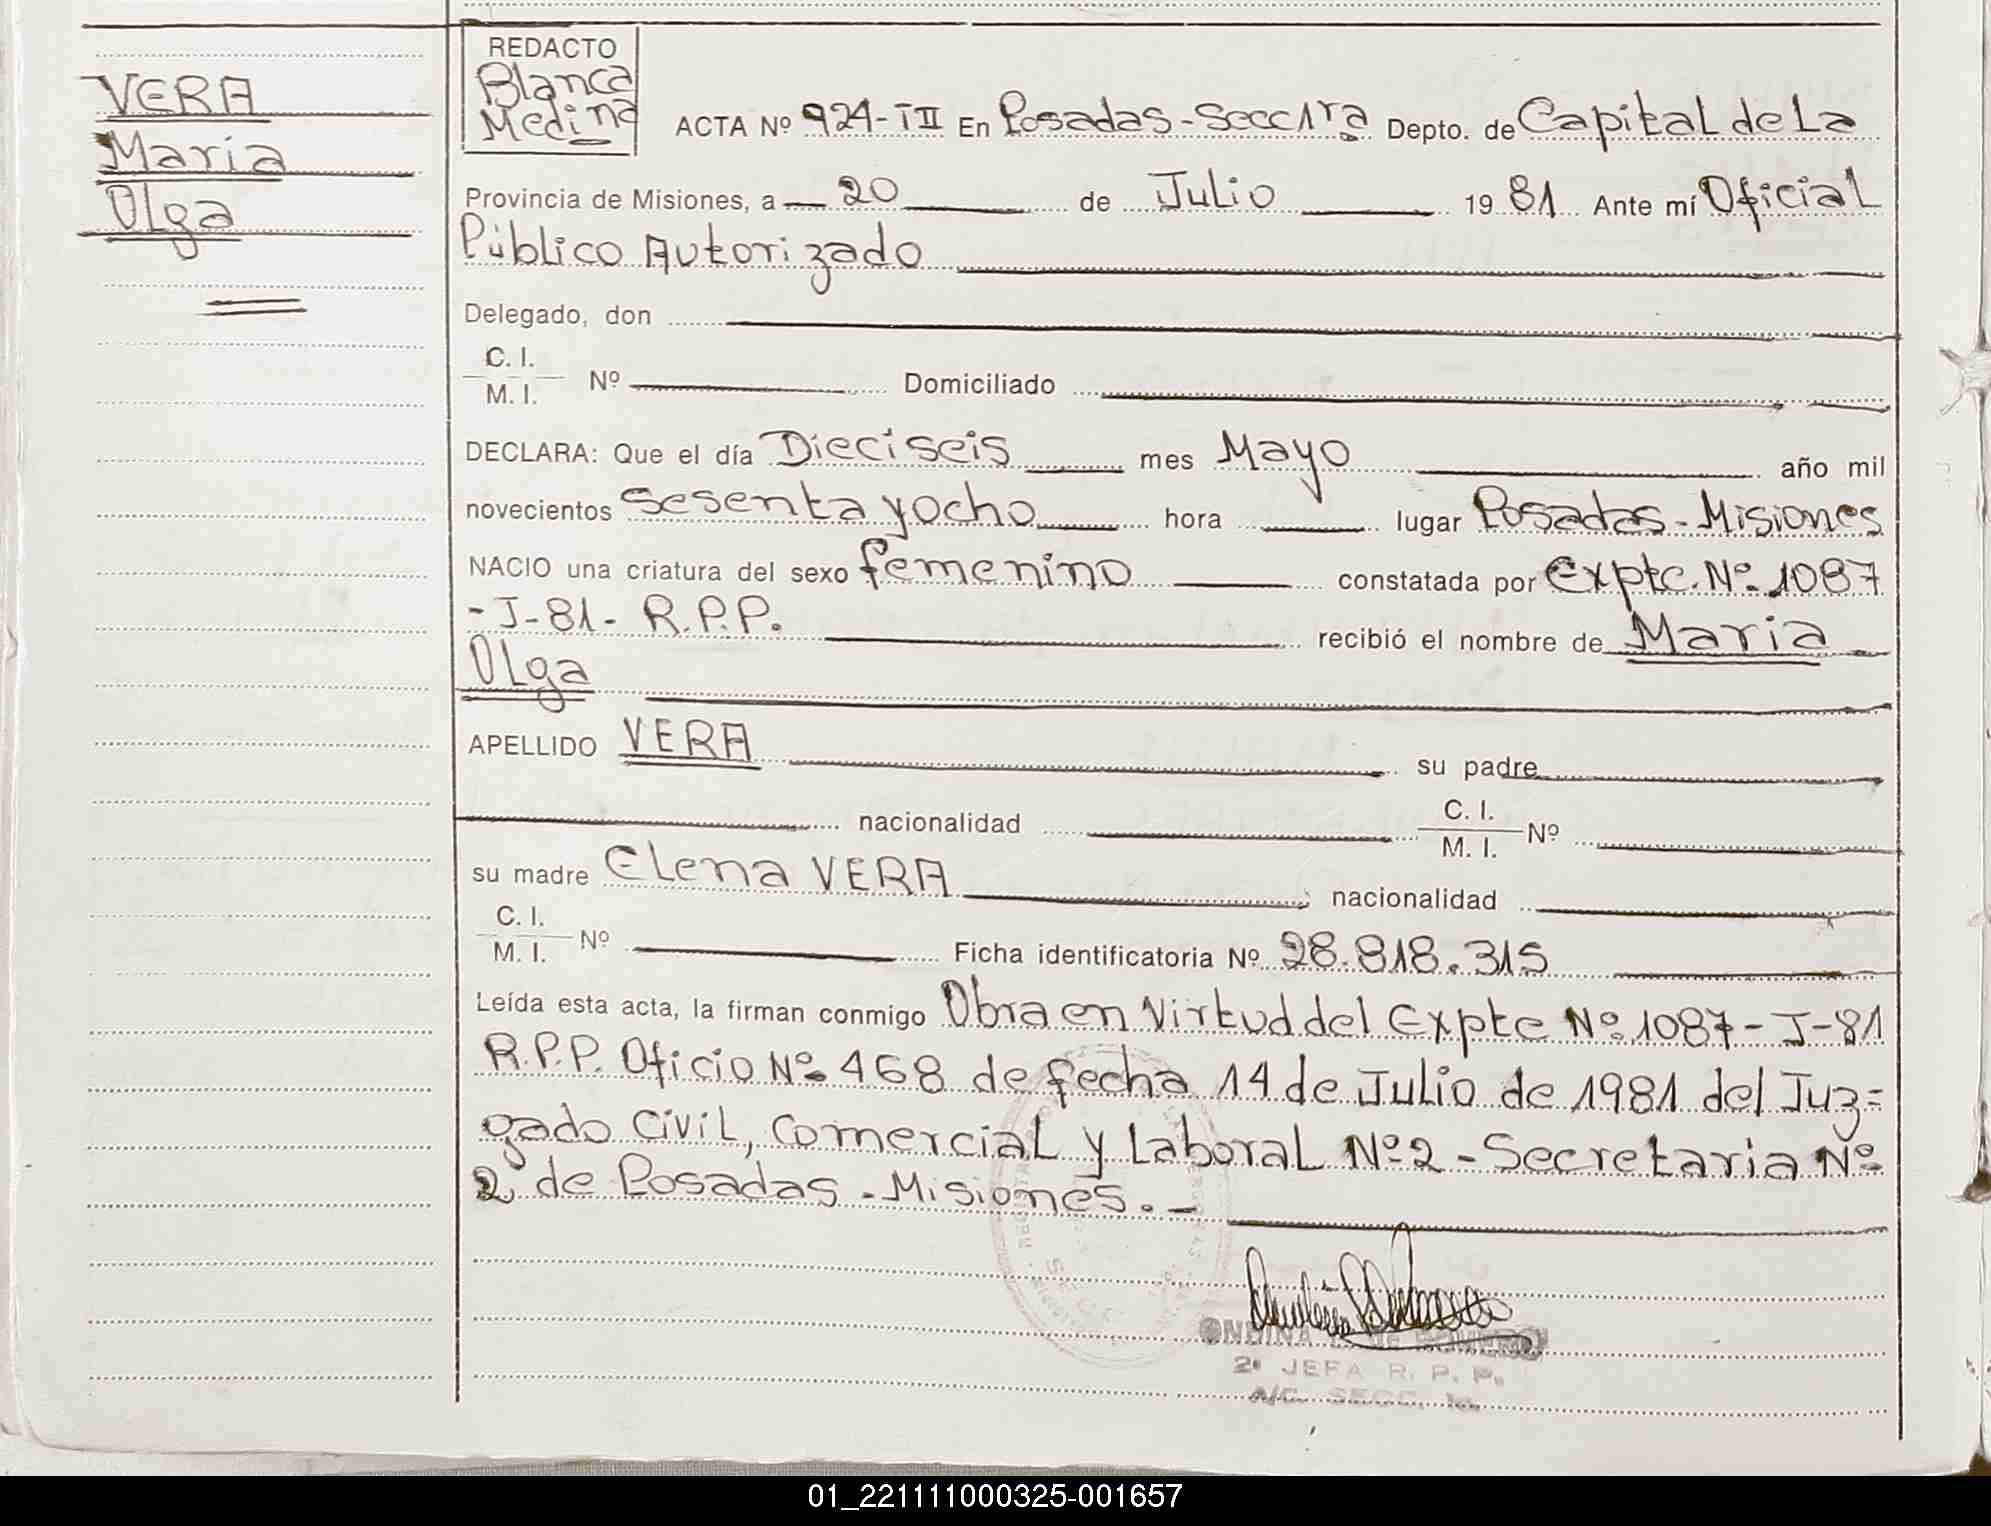 VERA
Maria
Olga
REDACTO
Blanca
Medina
ACTA Nº 924-III En Posadas-Secc 1ra Depto. de Capital de La
Provincia de Misiones, a 20 de Julio 19 81 Ante mí Oficial
Público Autorizado
Delegado, don
C. I.
M. I. Nº Domiciliado
DECLARA: Que el día Dieciseis mes Mayo año mil
novecientos sesenta y ocho hora lugar Posadas-Misiones
NACIO una criatura del sexo femenino constatada por Expte. Nº 1087
-J-81- R.P.P. recibió el nombre de Maria
Olga
APELLIDO VERA su padre
nacionalidad C. I.
M. I. Nº
su madre Elena VERA nacionalidad
C. I.
M. I. Nº Ficha identificatoria Nº 28.818.315
Leída esta acta, la firman conmigo Obra en Virtud del Expte Nº 1087-J-81
R.P.P. Oficio Nº 468 de fecha 14 de Julio de 1981 del Juz=
gado Civil, Comercial y Laboral Nº 2-Secretaria Nº
2 de Posadas-Misiones.-
ONDINA DE
2ª JEFA R. P. P.
A/C. SECC. 1a.
01_221111000325-001657